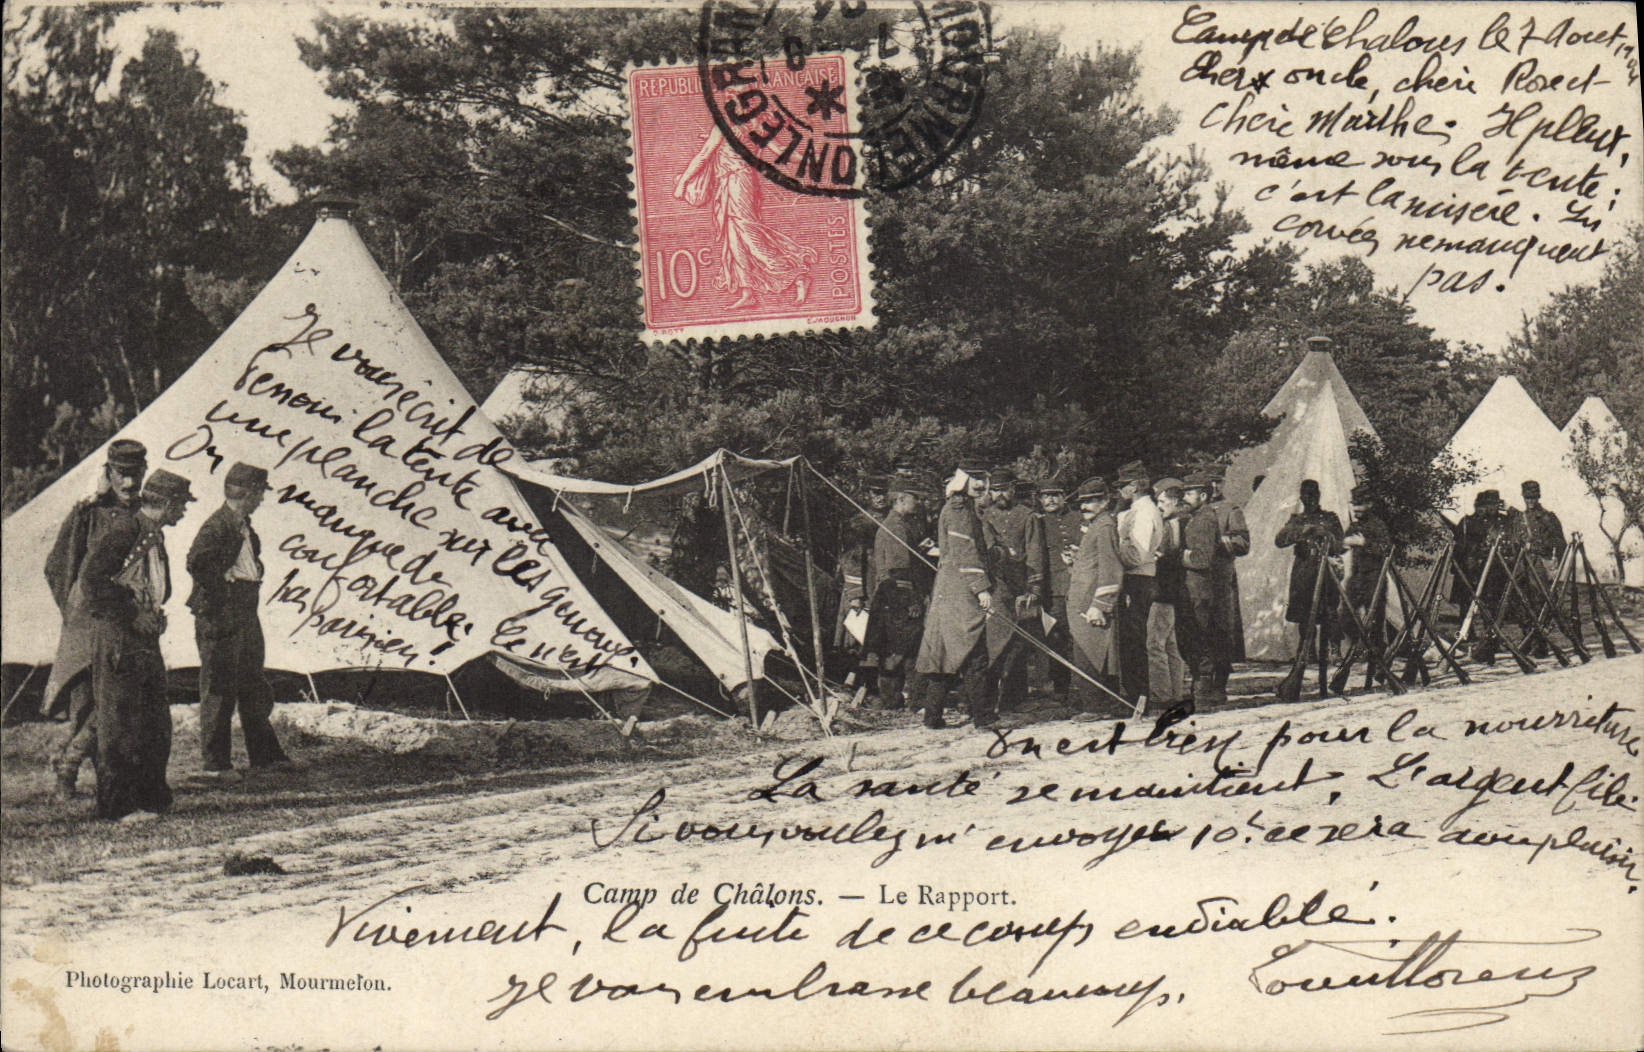 Camp de Chalons le 7 Aout
Cher oncle, chère
Chère Marthe. Il pleut,
même sous la tente;
c'est la misère. Les
corvées ne manquent
pas.
REPUBLIQUE FRANÇAISE
10c
POSTES
O. ROTY
MOURMELON LE GRAND
Je vous écrit de
la tente avec
une planche sur les genoux.
On manque de
confortable. Ce n'est
pas parisien!
On est bien pour la nourriture
La santé se maintient. L'argent file.
Si vous voulez m'envoyer 10f ce sera avec plaisir.
Camp de Châlons. — Le Rapport.
Vivement, la fuite de ce camp endiablé.
Photographie Locart, Mourmelon.
Je vous embrasse beaucoup.